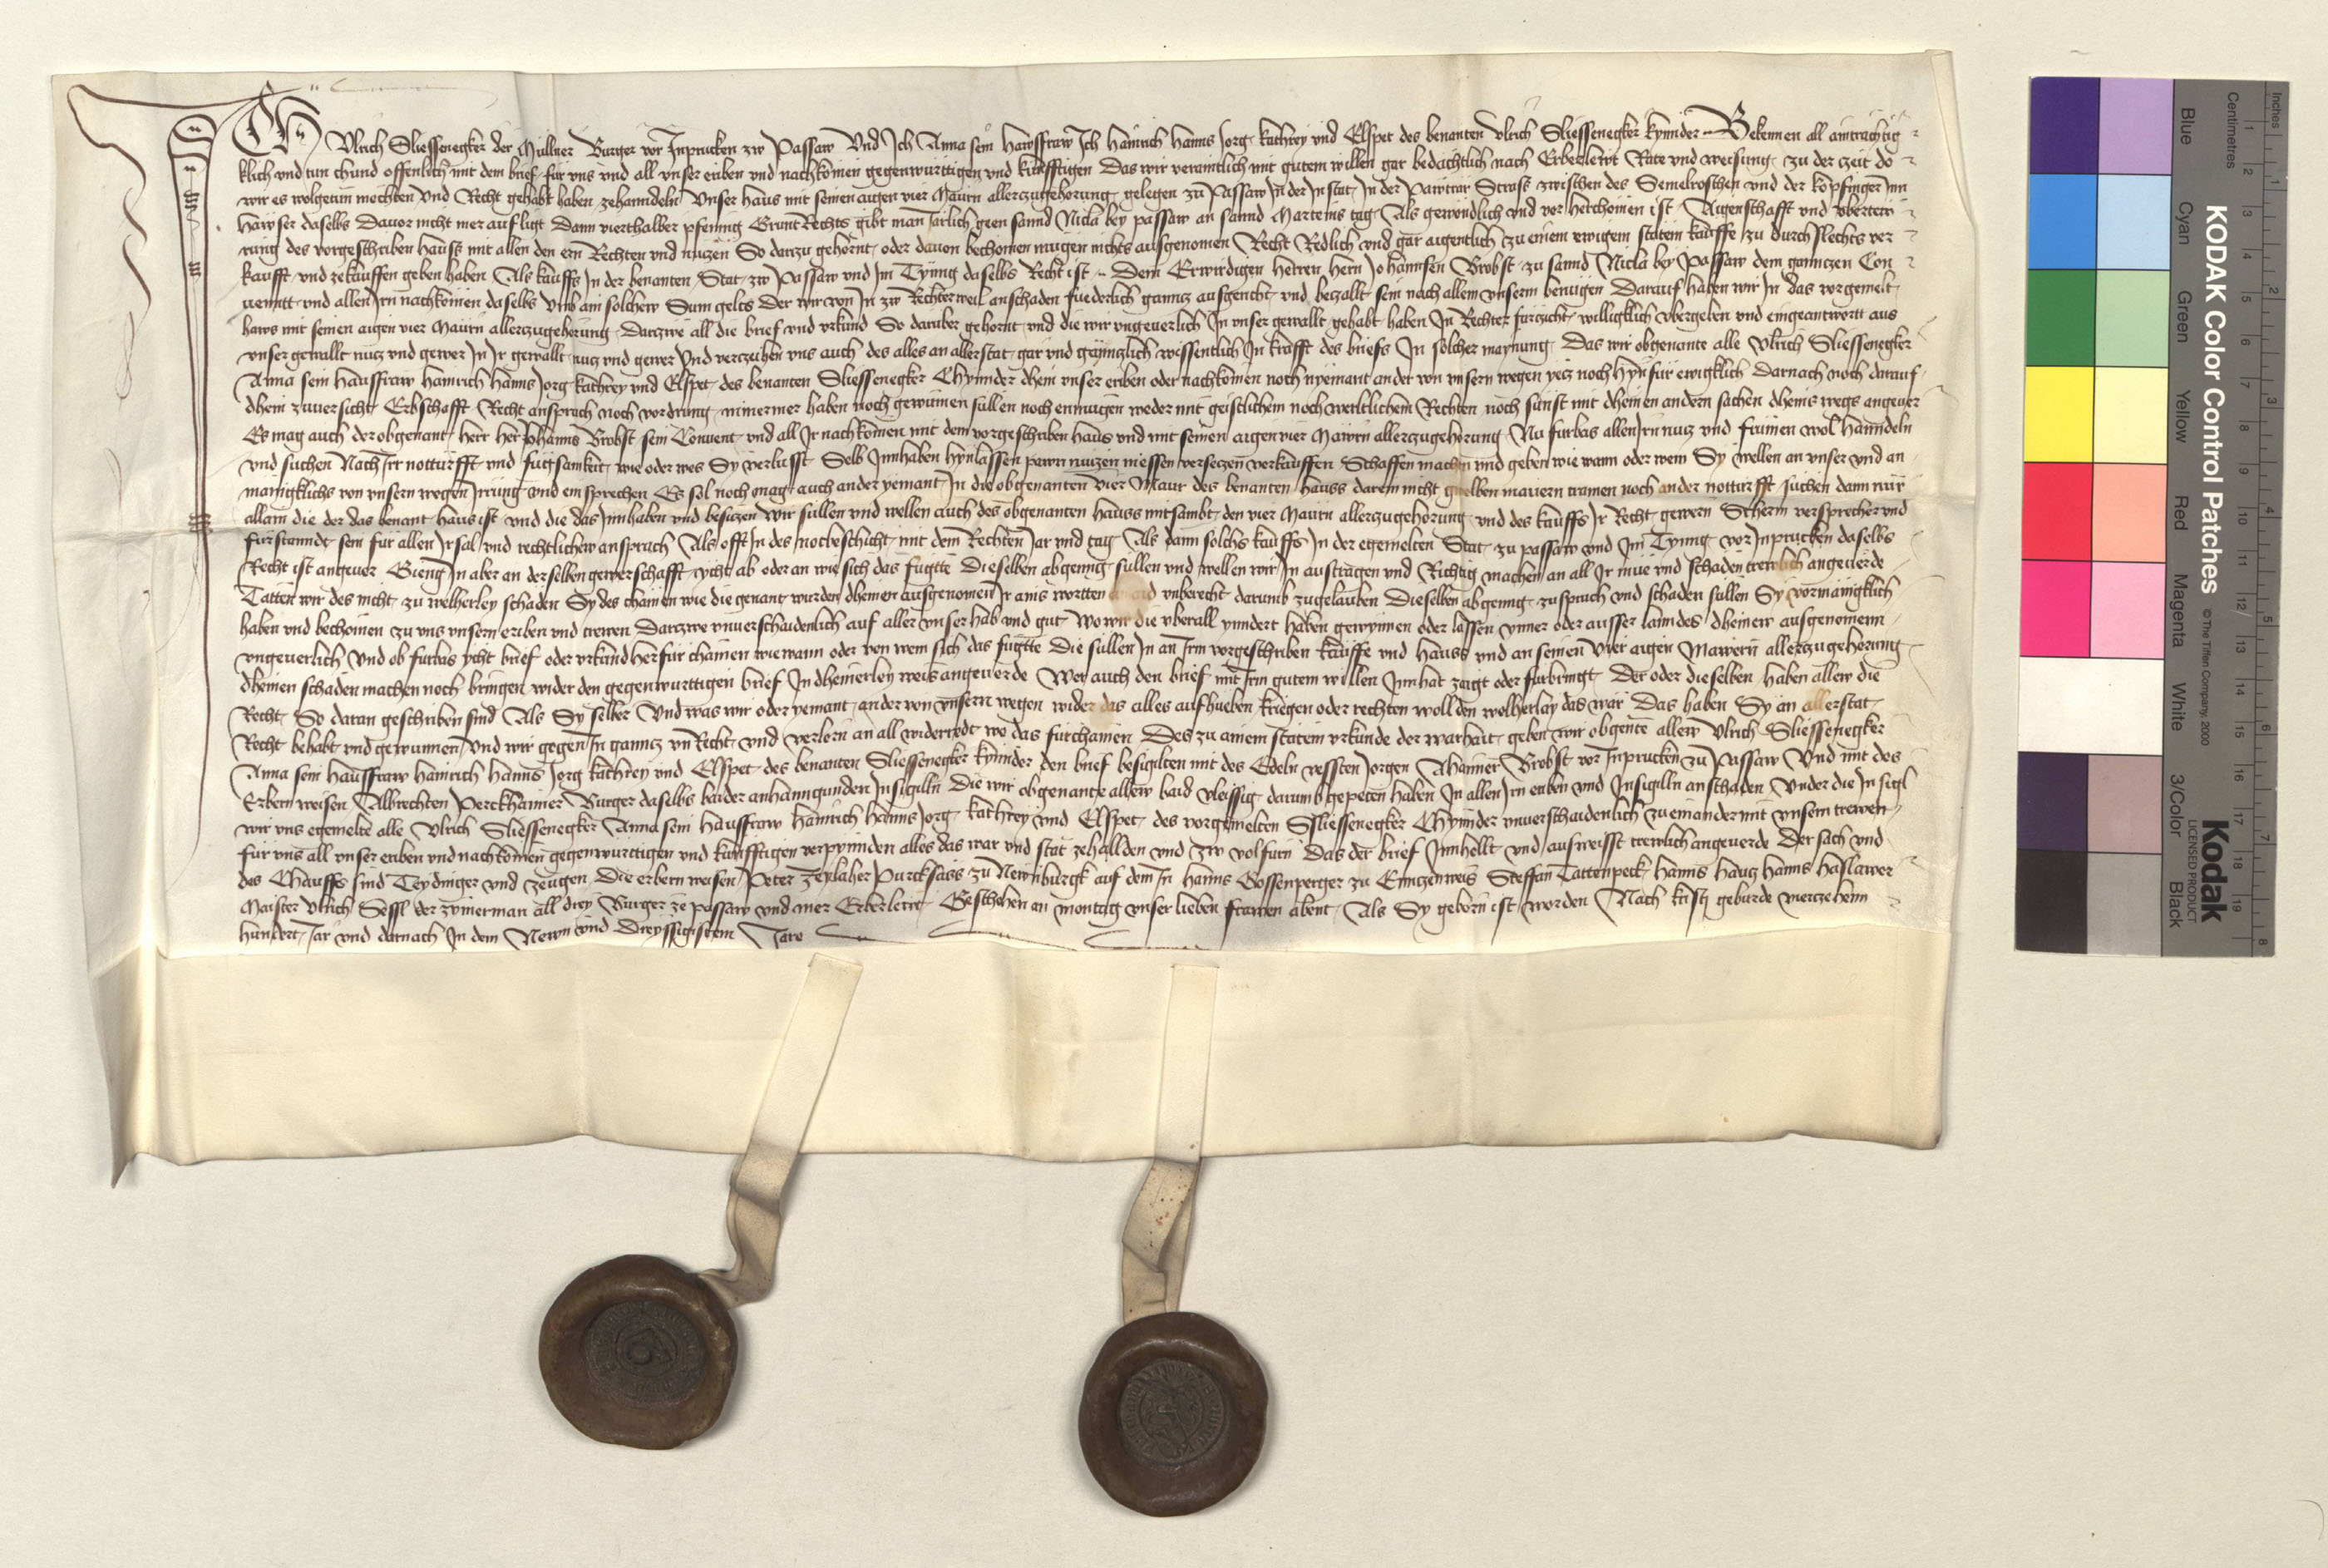 Ich Ulrich Sliessenegker der Müllner Burger vor Inprucken zw Passaw Und Ich Anna sein Hawsfraw Ich Hainrich Hanns Jorg kathrey und Elspet des benanten Ulrich Sliessenegker kynnder Bekennen all aintrachtig
klich und tun chund offenlich mit dem brief für uns und all unser eriben und nachkomen gegenwürttigen und künfftigen Das wir veraintlich mit gutem willen gar bedachtlich nach Erberlewt Rate und weisung zu der czeit do
wir es wolgetun mochten und Recht gehabt haben zehanndeln Unser haus mit seinen aigen vier Maurn allerzugehorung gelegen zu Passaw In der Instat In der Strass zwischen des Semelroschen und der kopfinger Inn
Hawser daselbs Davor nicht mer auf ligt Dann vierthalber pfennig GruntRechts gibt man Jarlich geen sannd Nicla bey passaw an sannd Marteins tag Als gewondlich und vor herchomen ist Aigenschafft und ubertew
rung des vorgeschriben Hauss mit allen den ern Rechten und nuczen So darzu gehornt oder davon bechomen mugen nichts ausgenomen Recht Redlich und gar aigentlich czu einem ewigem statem kauffe zu durchslechts ver
kaufft und zekauffen geben haben Als kauffs In der benanten Stat zw Passaw und Im daselbs Recht ist Dem Erwirdigen Herren Hern Johannsen Brobst zu sannd Nicla bey Passaw dem ganczen Con
uentt und allen Irn nachkomen daselbs Umb ain solchew Sum gelts Der wir von In zw Rechterweil anschaden fuederlich ganncz ausgericht und beczallt sein nach allem unserm benügen Darauf haben wir In das vorgemelt
haws mit seinen aigen vier Maurn allerczugehorung Darczue all die brief und urkund So daruber gehornt und die wir ungeuerlich In unser gewallt gehabt haben In Rechter furczicht willigklich ubergeben und eingeantwortt aus
unser gewallt nucz und gewer In Ir gewallt nucz und gewer Und verczeihen uns auch des alles an allerstat gar und gannczlich wissentlich In krafft des briefs In solcher maynung Das wir obgenante alle Ulrich Sliessenegker
Anna sein Hausfraw Hainrich Hanns Jorg kathrey und Elspet des benanten Sliessenegker Chynnder dhein unser eriben oder nachkomen noch nyemant ander von unsern wegen yecz noch Hynfür ewigklich Darnach noch darauf
dhein zuuersicht Erbschafft Recht ansprach noch vordrung nimermer haben noch gewinnen sullen noch enmugen weder mit geistlichem noch weltlichem Rechten noch sunst mit dheinen andern sachen dheins wegs angeuer
Es mag auch der obgenant Herr Her Johanns Brobst sein Conuent und all Ir nachkomen mit dem vorgeschriben Haus und mit seinen aigen vier Mawrn allerczugehorung Nu furbas allen Irn nucz und frumen wol Hanndeln
und suchen Nach Irr notturfft und fugsamkait wie oder wes Sy verlusst Selb Innhaben hynlassen pawn nuczen niessen verseczen verkauffen Schaffen machen und geben wie wann oder wem Sy wellen an unser und an
manigklichs von unsern wegen Irrung und einsprechen Es sol noch mag auch ander yemant In die obgenanten vier Maur des benanten Hauss darein nicht gwelben mauern tramen noch ander notturfft suchen dann nur
allain die der das benant Haus ist und die das Innhaben und besiczen Wir sullen und wellen auch des obgenanten Hauss mitsambt den vier Maurn allerczugehorung und des kauffs Ir Recht gewern Scherm versprecher und
furstanndt sein fur allen Irsal und rechtlicher ansprach Als offt In des notbeschicht mit dem Rechten Jar und tag Als dann solchs kauffs In der egemelten Stat zu passaw und Im vor Inprucken daselbs
Recht ist angeuer Gieng In aber an derselben gewerschafft ycht ab oder an wie sich das fugtte Dieselben abgenng sullen und wellen wir In austragen und Richtig machen an all Ir mue und schaden trewlich angeuerde
Tatten wir des nicht zu welherley schaden Sy des chamen wie die genant wurden dheiner ausgenomen Ir ainis wortten unberecht darumb zugelauben Dieselben abgenng zuspruch und schaden sullen Sy vormanigklich
haben und bechomen zu uns unsern eriben und trewen Darczue unuerschaidenlich auf aller unser hab und gut Wo wir die uberall ynndert haben gewynnen oder lassen Inner oder ausser lanndes dheinew ausgenomenn
ungeuerlich Und ob furbas ycht brief oder urkund Herfur chamen wiewann oder von wem sich das fugtte Die sullen In an Irm vorgeschriben kauffe und Hauss und an seinen vier aigen Mawern allerczugehorung
dheinen schaden machen noch bringen wider den gegenwurttigen brief In dheinerley weis angeuerde Wer auch den brief mit Irm gutem willen Innhat zaigt oder furbringt Der oder dieselben haben allew die
Recht So daran geschriben sind Als Sy selber Und was wir oder yemant ander von unsern wegen wider das alles aufhueben kriegen oder rechten wollden welherlay das wär Das haben Sy an allerstat
Recht behabt und gewunnen Und wir gegen In ganncz unRecht und verlorn an all widerredt wo das furchamen Des zu ainem statem urkunde der warhait geben wir obgente allew Ulrich Sliessenegker
Anna sein Hausfraw Hainrich Hanns Jorg kathrey und Elspet des benanten Sliessenegker kynnder den brief besigilten mit des Edeln vessten Jorgen Ahaimer Brobst vor Inprucken zu Passaw Und mit des
Erbern weisen Albrechten Perckhaimer Burger daselbs baider anhanngunden Insigilln Die wir obgenante allew baid vleissig darumb gepeten haben In allen Irn eriben und Insigilln anschaden Under die Insigl
wir uns egemelte alle Ulrich Sliessenegker Anna sein Hausfraw Hainrich Hanns Jorg kathrey und Elspet des vorgemelten Sliessenegker Chynnder unuerschaidenlich zu einander mit unsern trewen
für uns all unser eriben und nachkomen gegenwurttigen und kunfftigen verpynnden alles das war und stat zehallden und zw volfurn Das der brief Innhellt und ausweisst trewlich angeuerde Der sach und
des Chauffs sind Teydinger und zeugen Die erbern weisen Peter Zeylaher Purcksass zu Newnburgk auf dem In Hanns Gossenperger zu Steffan Tattenpeck Hanns Hauz Hanns Haslawer
Maister Ulrich Sessl der zymerman all drey Burger ze passaw und mer Erberlewt Geschehen an montag unser lieben frawen abent Als Sy geborn ist worden Nach kristi geburde vierczehenn
hundert Jar und darnach In dem Newn und Dreyssigistem Jare
KODAK Color Control Patches © The Tiffen Company, 2000
Kodak
LICENSED PRODUCT
Blue Cyan Green Yellow Red Magenta White 3/Color Black
Centimetres 1 2 3 4 5 6 7 8 9 10 11 12 13 14 15 16 17 18 19
Inches 1 2 3 4 5 6 7 8